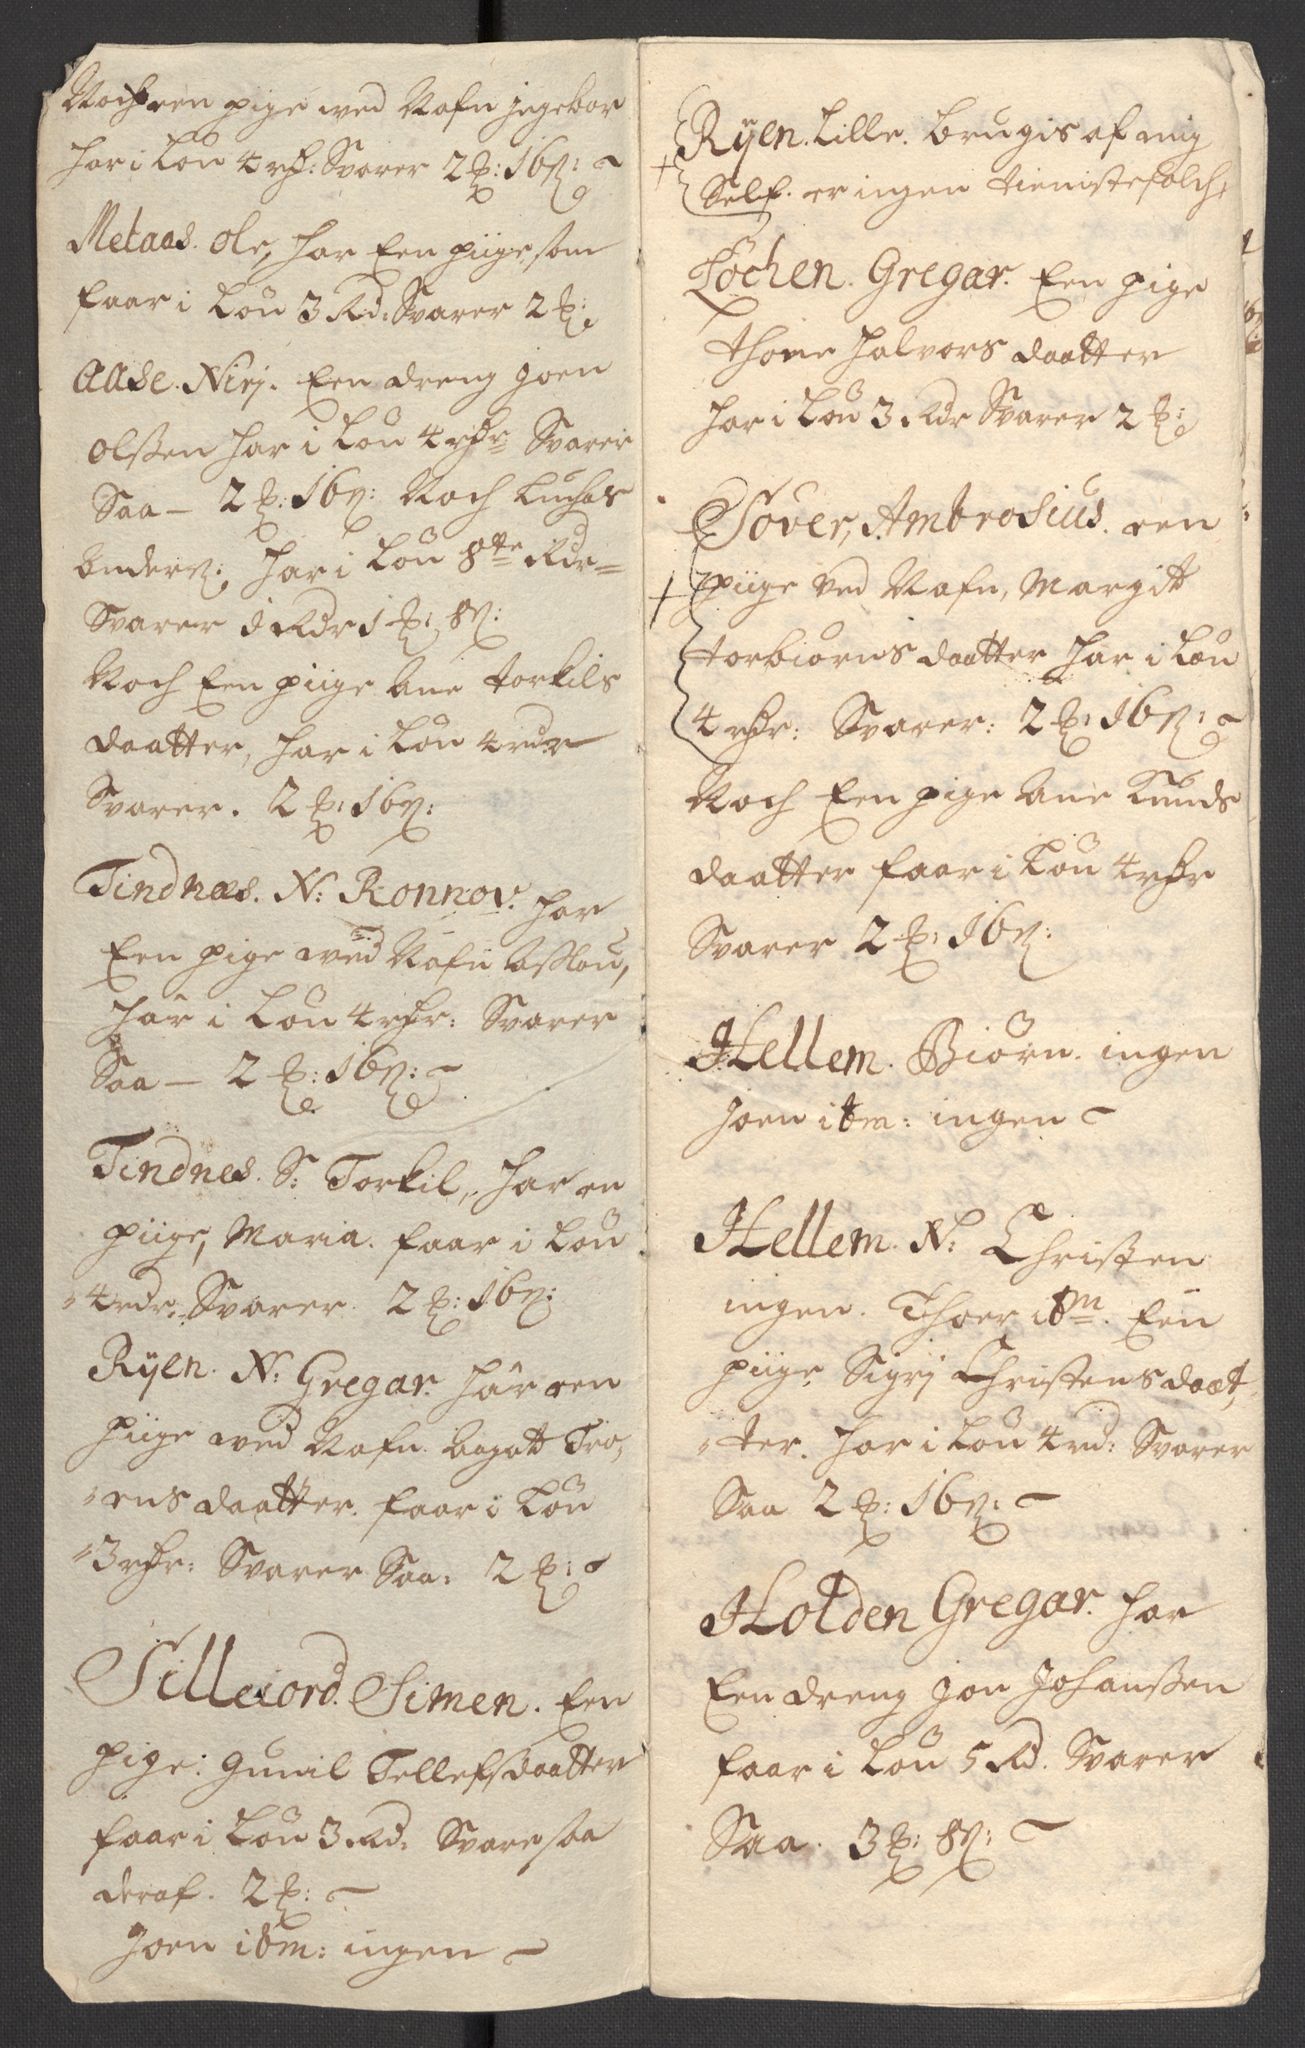 Noch een pige wed Nafn jngebor
har i Lön 4 rdr: Svarer 2 ℔: 16 ß: ~
Metaas. Ole, har Een piige som
faar i Lön 3 Rd: Svarer 2 ℔:
Aase. Nirj. Een dreng Joen
olßen har i Lön 4 rdr Svarer
Saa — 2 ℔: 16 ß: Noch Luchas
anderß: har i Lön 8te Rdr
Svarer i Rdr 1 ℔: 8 ß:
Noch Een piige ane torkils
daatter, har i Lön 4 rdr
Svarer. 2 ℔: 16 ß:
Tindnæs. N: Ronnov. har
Een pige wed Nafn aßlou,
har i Lön 4 rdr: Svarer
Saa — 2 ℔: 16 ß: ~
Tindnes. S: Torkil, har en
piige, Maria. faar i Lön
4 rdr. Svarer. 2 ℔: 16 ß:
Rÿen. N: Gregar. har een
piige wed Nafn. aagott Tro,
ens daatter. faar i Lön
3 rdr: Svarer Saa: 2 ℔: ~
Silleiord. Simen. Een
pige: gunil Tellefsdaatter
faar i Lön 3 Rd: Svare saa
deraf. 2 ℔: ~
Joen itm: ingen ~
Rÿen. Lille. brugis af mig
Self. er ingen tienistefolch,
Löchen. Gregar. Een pige
thone halvors daatter
har i Lön 3 Rdr Svarer 2 ℔:
Söver, Ambrosius. een
piige ved Nafn, Margitt
torbiörns daatter har i Løn
4 rdr: Svarer: 2 ℔: 16 ß: ~
Noch Een pige ane Knuds
daatter faar i Lön 4 rdr
Svarer 2 ℔: 16 ß:
Hellem. Biörn. ingen
Joen itm: ingen ~
Hellem. N: Christen
ingen. Thoer itm. Een
piige Sigrj Christens daat,
ter. har i Lön 4 rd: Svarer
Saa 2 ℔: 16 ß: ~
Holden Gregar. har
Een dreng Jon Johanßen
faar i Lön 5 Rd. Svarer
Saa. 3 ℔: 8 ß: ~